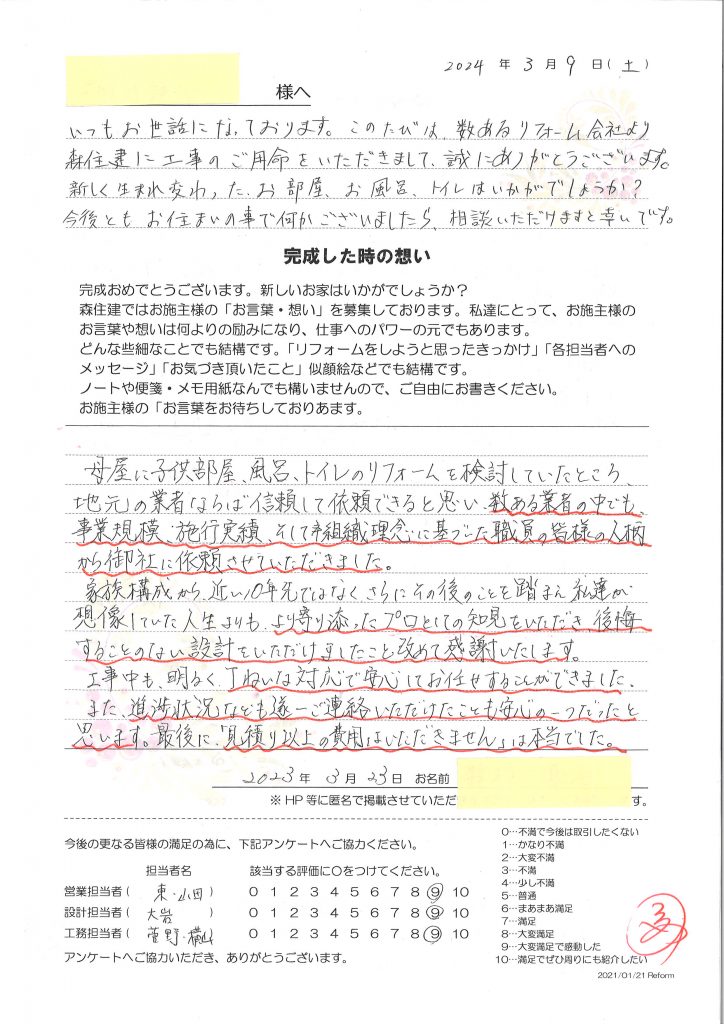 2024 年 3 月 9 日(土)
様へ
いつもお世話になっております。このたびは、数あるリフォーム会社より
森住建に工事のご用命をいただきまして、誠にありがとうございます。
新しく生まれ変わった、お部屋、お風呂、トイレはいかがでしょうか?
今後とも お住まいの事で何かございましたら、相談いただけますと幸いです。
完成した時の想い
完成おめでとうございます。新しいお家はいかがでしょうか?
森住建ではお施主様の「お言葉・想い」を募集しております。私達にとって、お施主様の
お言葉や想いは何よりの励みになり、仕事へのパワーの元でもあります。
どんな些細なことでも結構です。「リフォームをしようと思ったきっかけ」「各担当者への
メッセージ」「お気づき頂いたこと」似顔絵などでも結構です。
ノートや便箋・メモ用紙なんでも構いませんので、ご自由にお書きください。
お施主様の「お言葉をお待ちしておりあます。
母屋に子供部屋、風呂、トイレのリフォームを検討していたところ、
「地元」の業者ならば信頼して依頼できると思い、数ある業者の中でも、
事業規模、施行実績、そして組織理念に基づいた職員の皆様の人柄
から御社に依頼させていただきました。
家族構成から、近い10年先ではなく、さらにその後のことを踏まえ、私達が
想像していた人生よりも、より寄り添ったプロとしての知見をいただき、後悔
することのない設計をいただけましたこと改めて感謝いたします。
工事中も、明るく、丁ねいな対応で安心してお任せすることができました。
また、進渉状況なども逐一ご連絡いただけたことも安心の一つだったと
思います。最後に、「見積り以上の費用はいただきません」は本当でした。
2023 年 3 月 23 日 お名前
※ HP 等に匿名で掲載させていただ す。
今後の更なる皆様の満足の為に、下記アンケートへご協力ください。
担当者名 該当する評価に○をつけてください。
営業担当者( 東・山田 ) 0 1 2 3 4 5 6 7 8 9 10
設計担当者( 大岩 ) 0 1 2 3 4 5 6 7 8 9 10
工務担当者( 菅野・横山 ) 0 1 2 3 4 5 6 7 8 9 10
アンケートへご協力いただき、ありがとうございます。
0…不満で今後は取引したくない
1…かなり不満
2…大変不満
3…不満
4…少し不満
5…普通
6…まあまあ満足
7…満足
8…大変満足
9…大変満足で感動した
10…満足でぜひ周りにも紹介したい
2021/01/21 Reform